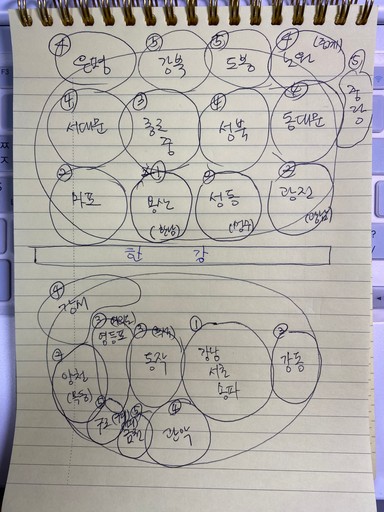 ④ ⑤ ⑤ ④
은평 강북 도봉 노원 ⑤
중랑
④ ③ ④ ④
서대문 종로 성북 동대문
중
② ① ② ②
마포 용산 성동 광진
(한남) (성수) (광남)
한 강
④
강서
③ ③ ① ②
영등포 동작 강남 강동
서초
송파
양천
(목동)
⑤ ④
구로 금천 관악